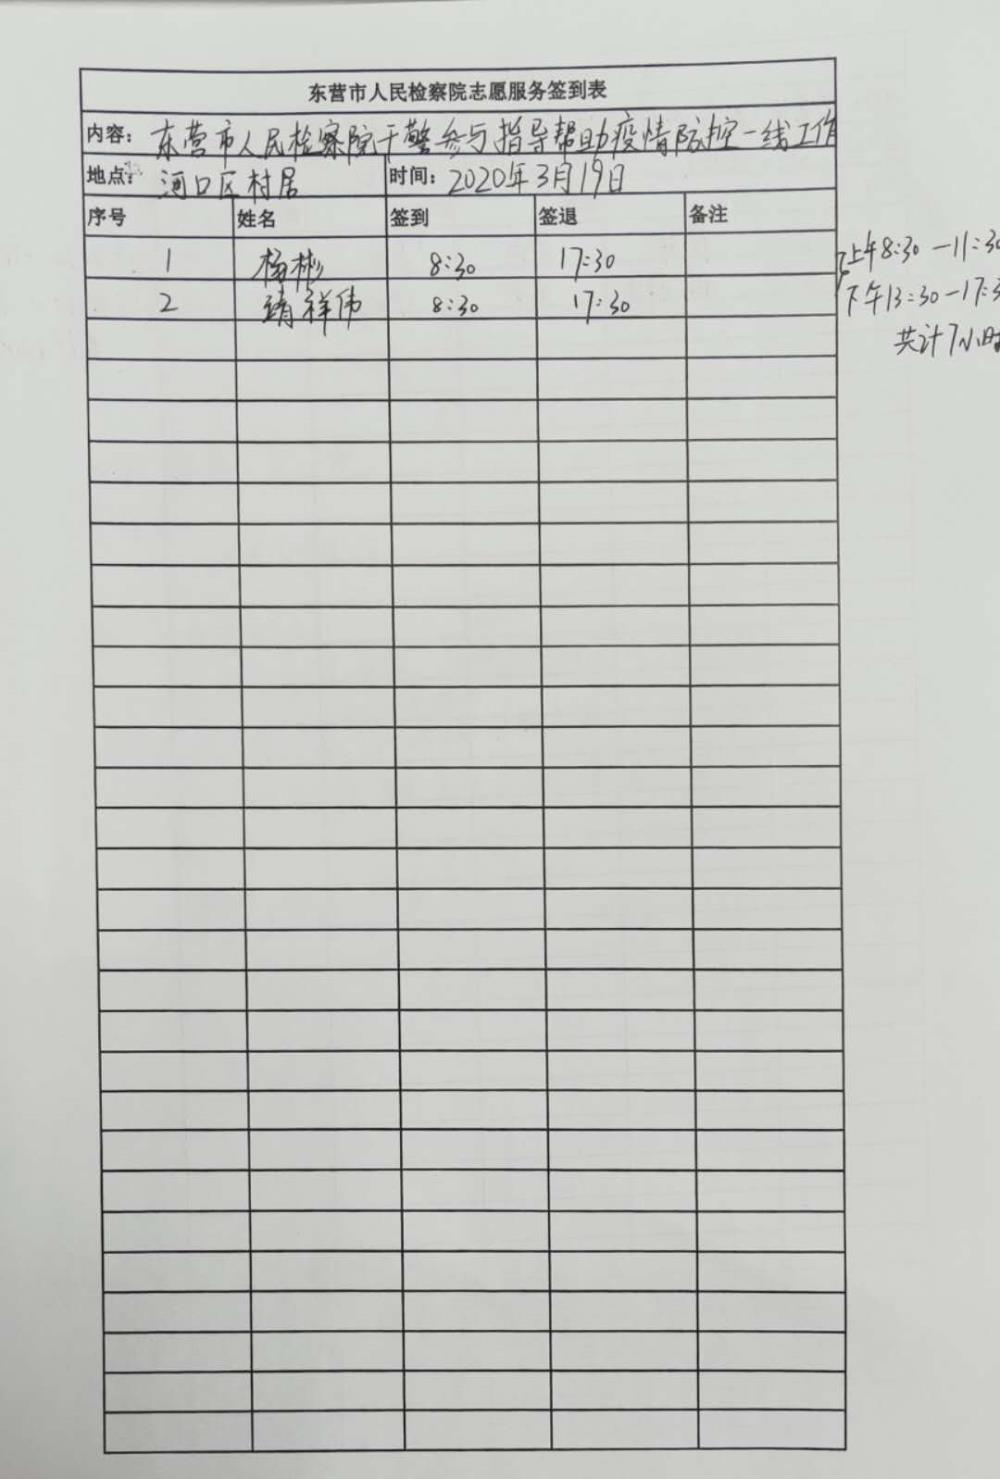 东营市人民检察院志愿服务签到表
内容: 东营市人民检察院干警参与指导帮助疫情防控一线工作
地点: 河口区村居 时间: 2020年3月19日
序号 姓名 签到 签退 备注
1 杨彬 8:30 17:30
2 靖祥伟 8:30 17:30
上午8:30-11:30
下午13:30-17:3
共计7小时